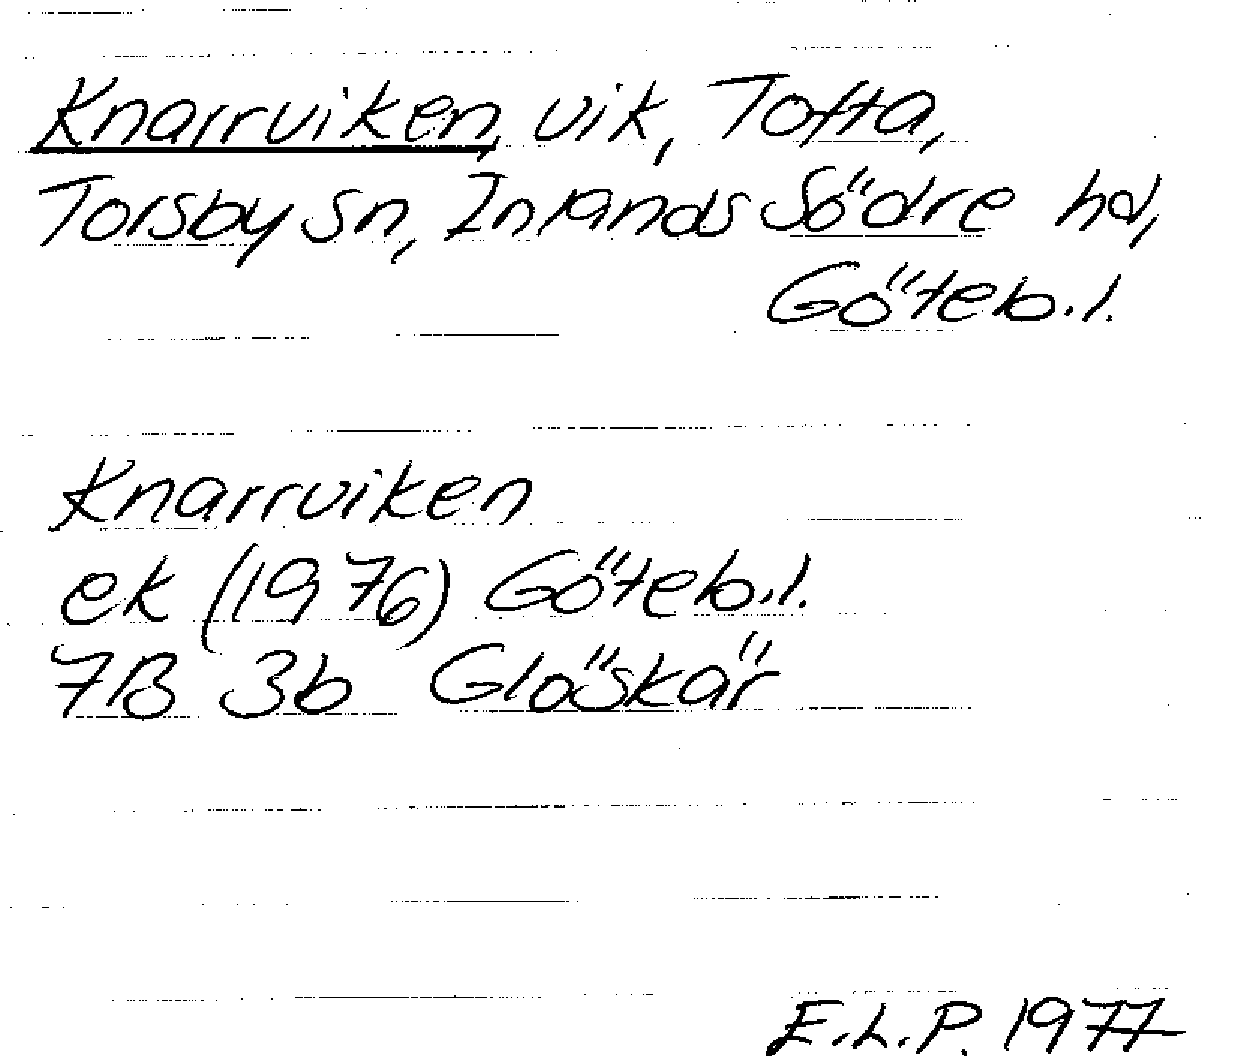 Knarrviken, vik, Tofta,
Torsby sn, Inlands Södre hd,
Göteb.l.
Knarrviken
ek (1976) Göteb.l.
7B 3b Glöskär
E.L.P. 1977